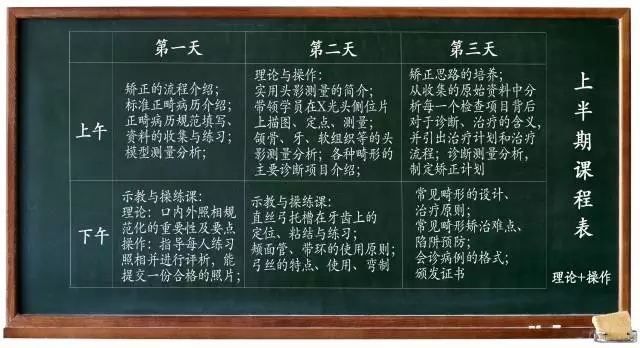 第一天
第二天
第三天
上午
矫正的流程介绍;
标准正畸病历介绍;
正畸病历规范填写、
资料的收集与练习;
模型测量分析;
理论与操作:
实用头影测量的简介;
带领学员在X光头侧位片
上描图、定点、测量;
颌骨、牙、软组织等的头
影测量分析;各种畸形的
主要诊断项目介绍;
矫正思路的培养;
从收集的原始资料中分
析每一个检查项目背后
对于诊断、治疗的含义,
并引出治疗计划和治疗
流程;诊断测量分析,
制定矫正计划
下午
示教与操练课:
理论:口内外照相规
范化的重要性及要点
操作:指导每人练习
照相并进行评析,能
提交一份合格的照片;
示教与操练课:
直丝弓托槽在牙齿上的
定位、粘结与练习;
颊面管、带环的使用原则;
弓丝的特点、使用、弯制
常见畸形的设计、
治疗原则;
常见畸形矫治难点、
陷阱预防;
会诊病例的格式;
颁发证书
上半期课程表
理论+操作